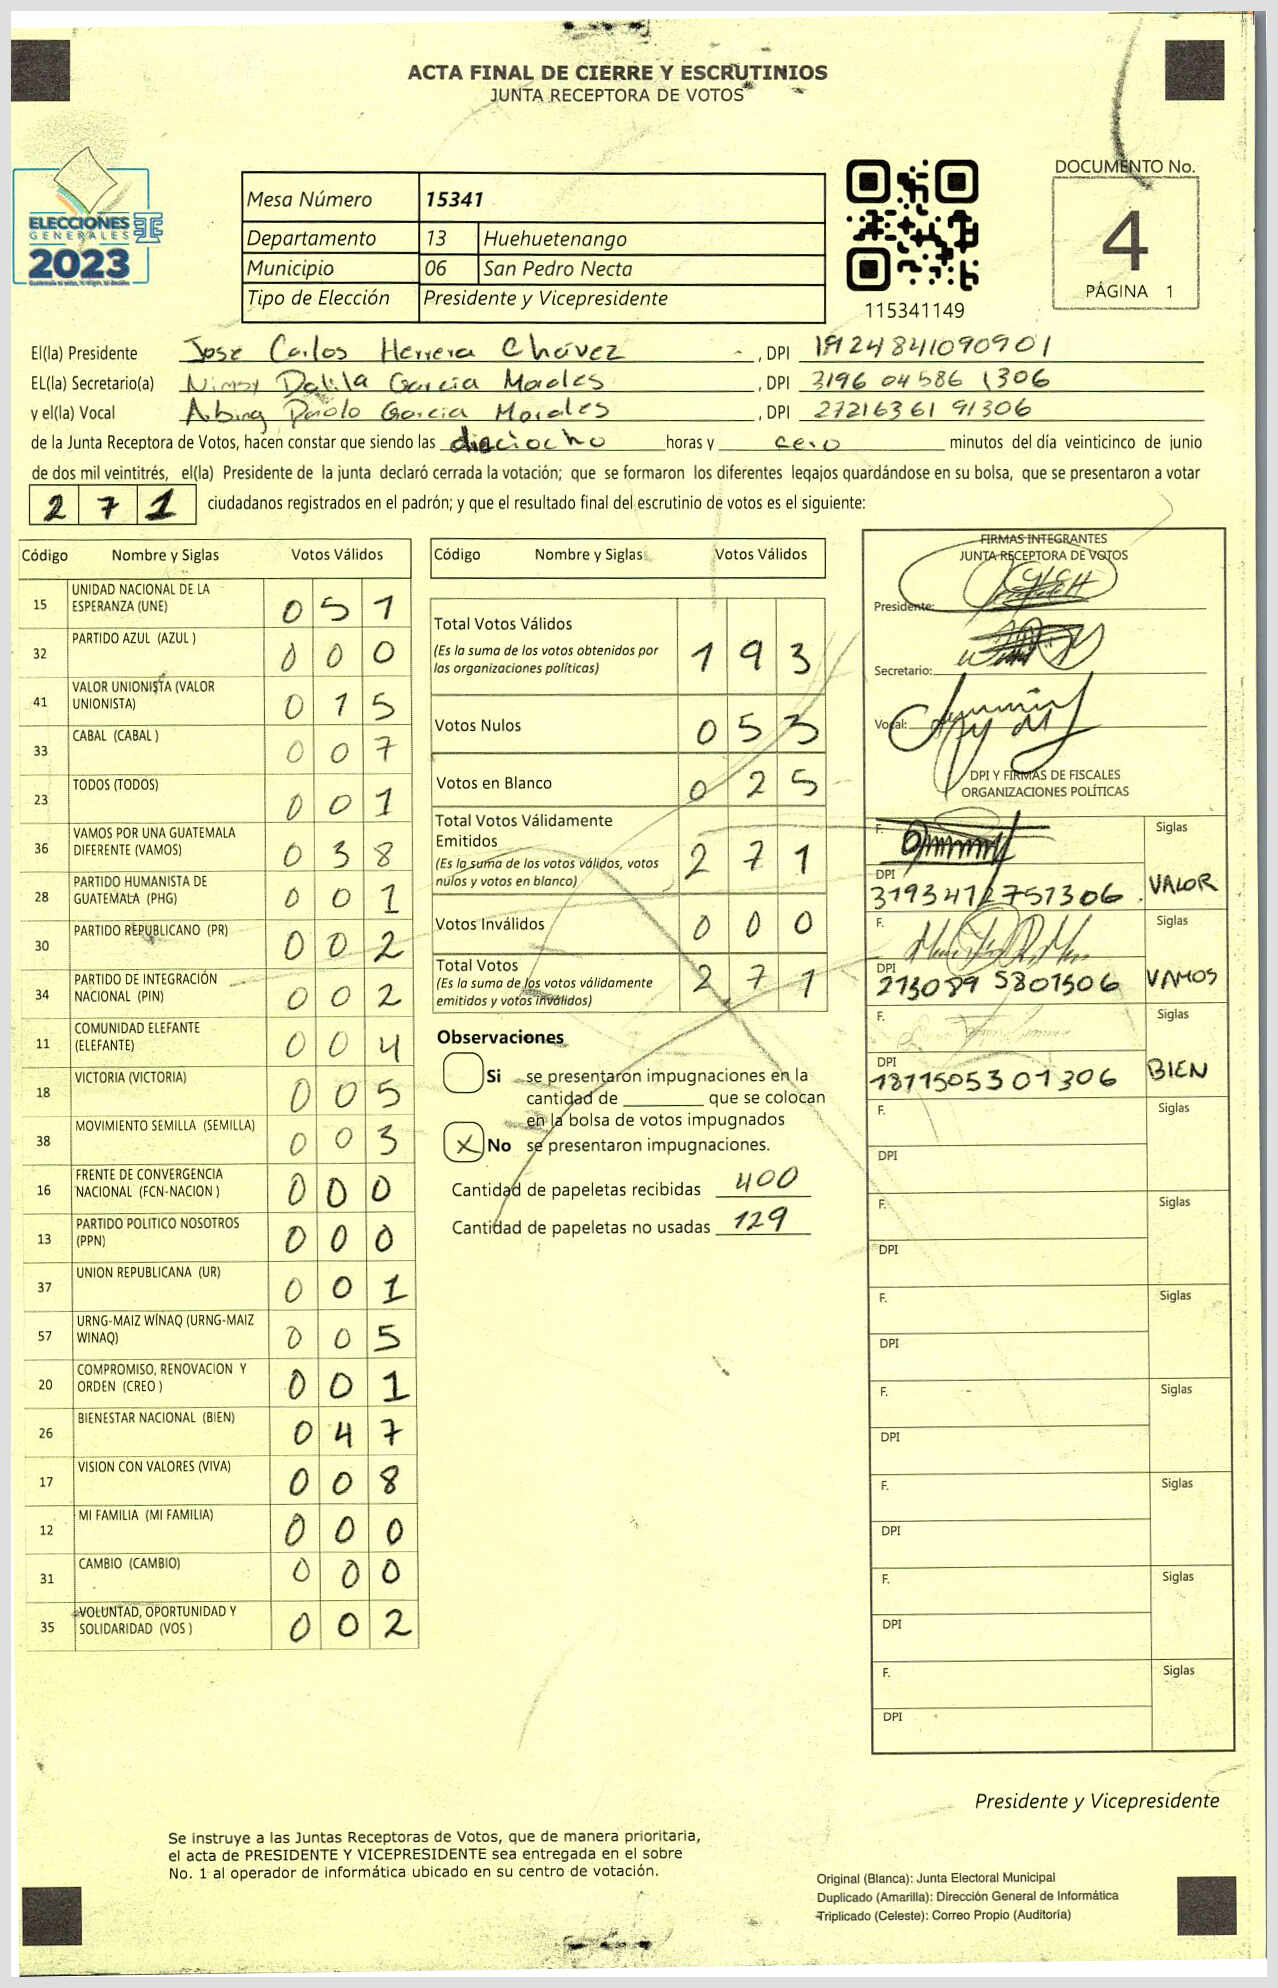 ACTA FINAL DE CIERRE Y ESCRUTINIOS
JUNTA RECEPTORA DE VOTOS
ELECCIONES
GENERALES
2023
Mesa Número 15341
Departamento 13 Huehuetenango
Municipio 06 San Pedro Necta
Tipo de Elección Presidente y Vicepresidente
115341149
DOCUMENTO No.
4
PÁGINA 1
El(la) Presidente Jose Carlos Herrera Chávez, DPI 1924841090901
EL(la) Secretario(a) Nimsy Dalila Garcia Morales, DPI 3196 04586 1306
y el(la) Vocal Paolo Garcia Morales, DPI 2721636191306
de la Junta Receptora de Votos, hacen constar que siendo las dieciocho horas y cero minutos del día veinticinco de junio
de dos mil veintitrés, el(la) Presidente de la junta declaró cerrada la votación; que se formaron los diferentes legajos quardándose en su bolsa, que se presentaron a votar
2 7 1 ciudadanos registrados en el padrón; y que el resultado final del escrutinio de votos es el siguiente:
Código Nombre y Siglas Votos Válidos
15 UNIDAD NACIONAL DE LA ESPERANZA (UNE) 0 5 1
32 PARTIDO AZUL (AZUL ) 0 0 0
41 VALOR UNIONISTA (VALOR UNIONISTA) 0 1 5
33 CABAL (CABAL ) 0 0 7
23 TODOS (TODOS) 0 0 1
36 VAMOS POR UNA GUATEMALA DIFERENTE (VAMOS) 0 3 8
28 PARTIDO HUMANISTA DE GUATEMALA (PHG) 0 0 1
30 PARTIDO REPUBLICANO (PR) 0 0 2
34 PARTIDO DE INTEGRACIÓN NACIONAL (PIN) 0 0 2
11 COMUNIDAD ELEFANTE (ELEFANTE) 0 0 4
18 VICTORIA (VICTORIA) 0 0 5
38 MOVIMIENTO SEMILLA (SEMILLA) 0 0 3
16 FRENTE DE CONVERGENCIA NACIONAL (FCN-NACION ) 0 0 0
13 PARTIDO POLITICO NOSOTROS (PPN) 0 0 0
37 UNION REPUBLICANA (UR) 0 0 1
57 URNG-MAIZ WÍNAQ (URNG-MAIZ WINAQ) 0 0 5
20 COMPROMISO, RENOVACION Y ORDEN (CREO ) 0 0 1
26 BIENESTAR NACIONAL (BIEN) 0 4 7
17 VISION CON VALORES (VIVA) 0 0 8
12 MI FAMILIA (MI FAMILIA) 0 0 0
31 CAMBIO (CAMBIO) 0 0 0
35 VOLUNTAD, OPORTUNIDAD Y SOLIDARIDAD (VOS ) 0 0 2
Código Nombre y Siglas Votos Válidos
Total Votos Válidos 1 9 3
(Es la suma de los votos obtenidos por
las organizaciones políticas)
Votos Nulos 0 5 3
Votos en Blanco 0 2 5
Total Votos Válidamente
Emitidos 2 7 1
(Es la suma de los votos válidos, votos
nulos y votos en blanco)
Votos Inválidos 0 0 0
Total Votos 2 7 1
(Es la suma de los votos válidamente
emitidos y votos inválidos)
Observaciones
Si se presentaron impugnaciones en la
cantidad de ________ que se colocan
en la bolsa de votos impugnados
X No se presentaron impugnaciones.
Cantidad de papeletas recibidas 400
Cantidad de papeletas no usadas 129
FIRMAS INTEGRANTES
JUNTA RECEPTORA DE VOTOS
Presidente:
Secretario:
Vocal:
DPI Y FIRMAS DE FISCALES
ORGANIZACIONES POLÍTICAS
F. Siglas
DPI 3193412751306 VALOR
F. Siglas
DPI 213089 5801306 VAMOS
F. Siglas
DPI 1811505301306 BIEN
F. Siglas
DPI
F. Siglas
DPI
F. Siglas
DPI
F. Siglas
DPI
F. Siglas
DPI
F. Siglas
DPI
F. Siglas
DPI
Presidente y Vicepresidente
Se instruye a las Juntas Receptoras de Votos, que de manera prioritaria,
el acta de PRESIDENTE Y VICEPRESIDENTE sea entregada en el sobre
No. 1 al operador de informática ubicado en su centro de votación.
Original (Blanca): Junta Electoral Municipal
Duplicado (Amarilla): Dirección General de Informática
Triplicado (Celeste): Correo Propio (Auditoría)